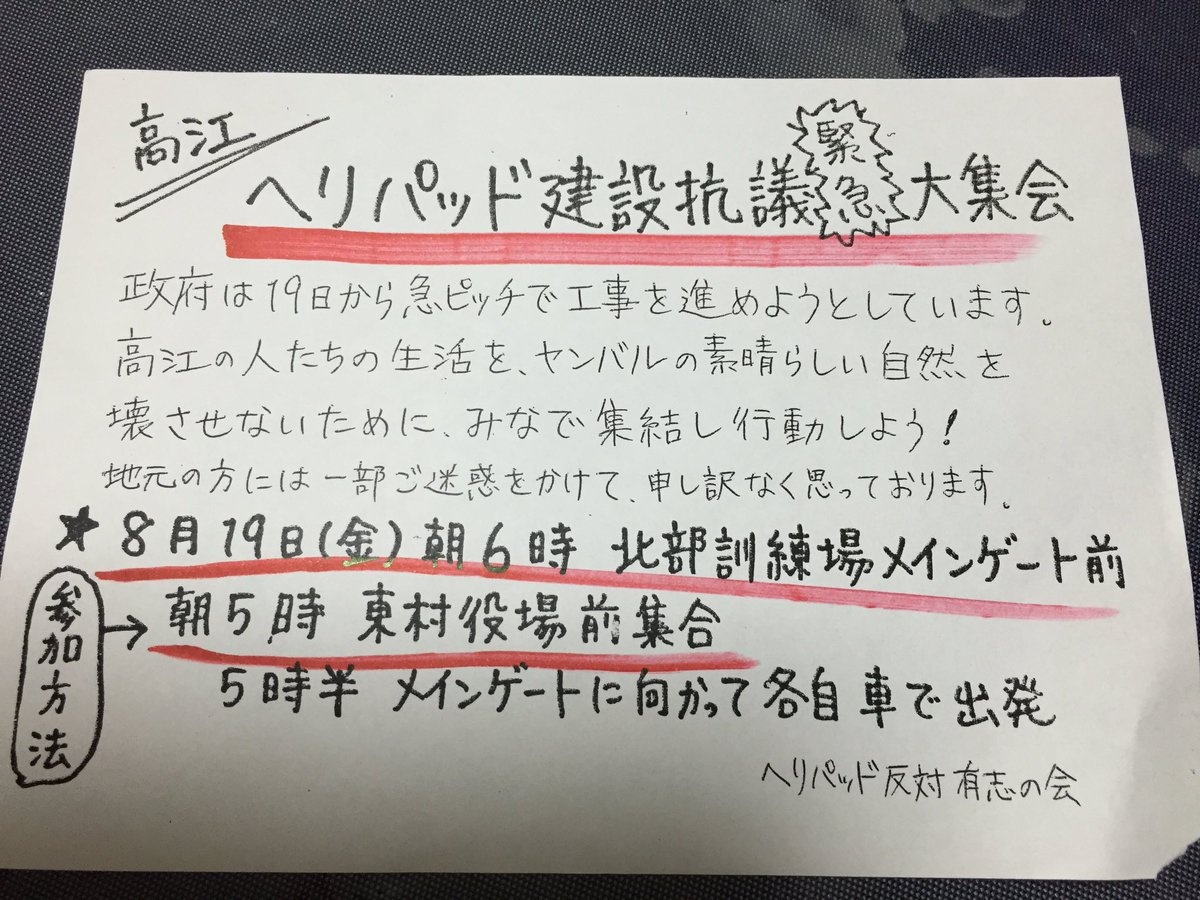 高江
ヘリパッド建設抗議緊急大集会
政府は19日から急ピッチで工事を進めようとしています。
高江の人たちの生活を、ヤンバルの素晴らしい自然を
壊させないために、みなで集結し行動しよう!
地元の方には一部ご迷惑をかけて、申し訳なく思っております。
★8月19日(金)朝6時 北部訓練場メインゲート前
参加方法→朝5時 東村役場前集合
5時半 メインゲートに向かって各自車で出発
ヘリパッド反対有志の会